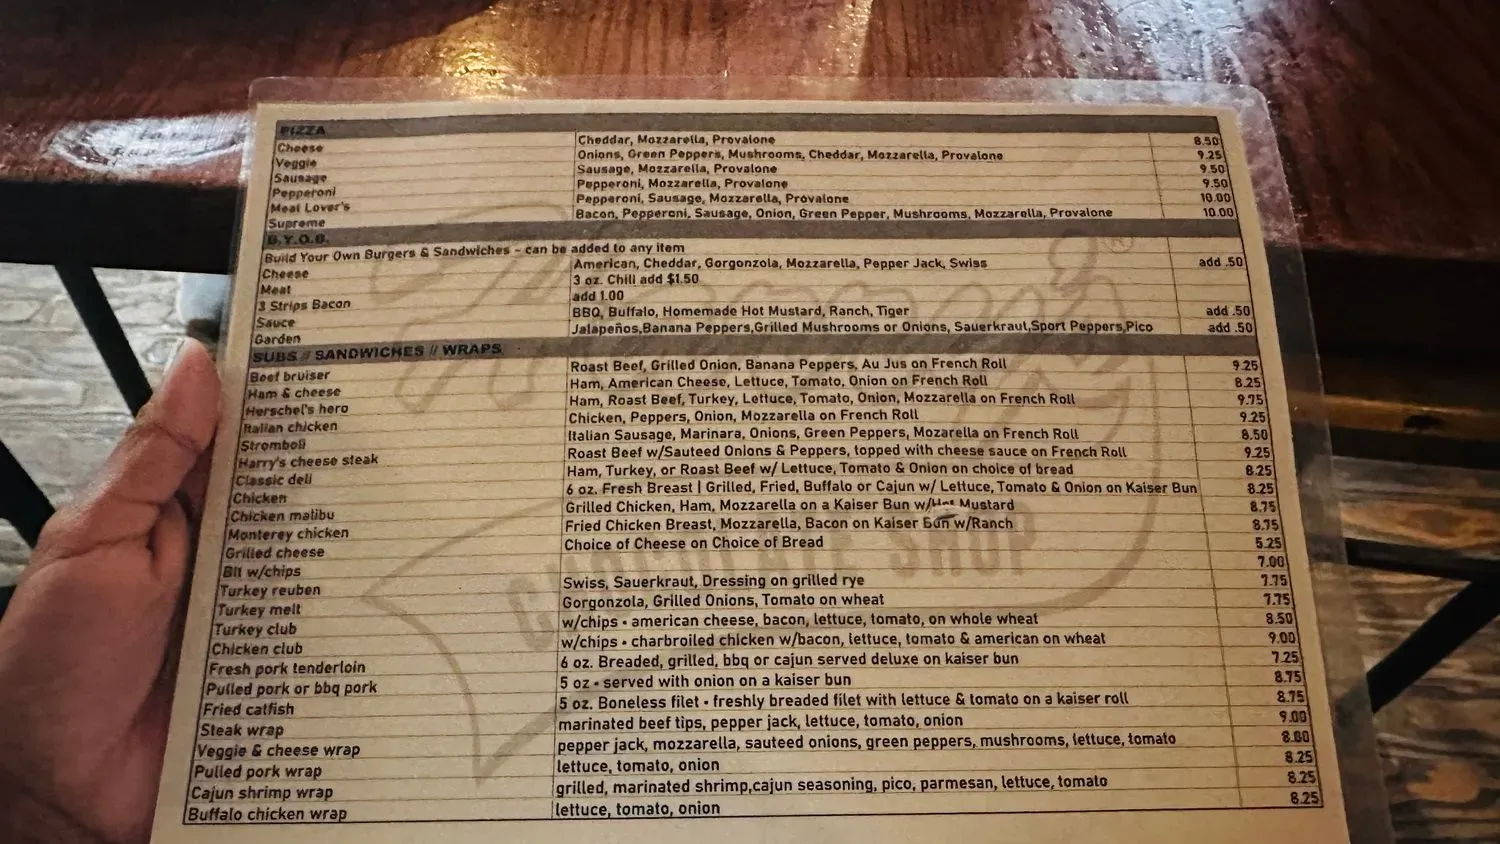 PIZZA
Cheese Cheddar, Mozzarella, Provalone 8.50
Veggie Onions, Green Peppers, Mushrooms, Cheddar, Mozzarella, Provalone 9.25
Sausage Sausage, Mozzarella, Provalone 9.50
Pepperoni Pepperoni, Mozzarella, Provalone 9.50
Meat Lover's Pepperoni, Sausage, Mozzarella, Provalone 10.00
Supreme Bacon, Pepperoni, Sausage, Onion, Green Pepper, Mushrooms, Mozzarella, Provalone 10.00
B.Y.O.B.
Build Your Own Burgers & Sandwiches - can be added to any item
Cheese American, Cheddar, Gorgonzola, Mozzarella, Pepper Jack, Swiss add .50
Meat 3 oz. Chili add $1.50
3 Strips Bacon add 1.00
Sauce BBQ, Buffalo, Homemade Hot Mustard, Ranch, Tiger add .50
Garden Jalapeños,Banana Peppers,Grilled Mushrooms or Onions, Sauerkraut,Sport Peppers,Pico add .50
SUBS // SANDWICHES // WRAPS
Beef bruiser Roast Beef, Grilled Onion, Banana Peppers, Au Jus on French Roll 9.25
Ham & cheese Ham, American Cheese, Lettuce, Tomato, Onion on French Roll 8.25
Herschel's hero Ham, Roast Beef, Turkey, Lettuce, Tomato, Onion, Mozzarella on French Roll 9.75
Italian chicken Chicken, Peppers, Onion, Mozzarella on French Roll 9.25
Stromboli Italian Sausage, Marinara, Onions, Green Peppers, Mozarella on French Roll 8.50
Harry's cheese steak Roast Beef w/Sauteed Onions & Peppers, topped with cheese sauce on French Roll 9.25
Classic deli Ham, Turkey, or Roast Beef w/ Lettuce, Tomato & Onion on choice of bread 8.25
Chicken 6 oz. Fresh Breast | Grilled, Fried, Buffalo or Cajun w/ Lettuce, Tomato & Onion on Kaiser Bun 8.25
Chicken malibu Grilled Chicken, Ham, Mozzarella on a Kaiser Bun w/Hot Mustard 8.75
Monterey chicken Fried Chicken Breast, Mozzarella, Bacon on Kaiser Bun w/Ranch 8.75
Grilled cheese Choice of Cheese on Choice of Bread 5.25
Blt w/chips 7.00
Turkey reuben Swiss, Sauerkraut, Dressing on grilled rye 7.75
Turkey melt Gorgonzola, Grilled Onions, Tomato on wheat 7.75
Turkey club w/chips • american cheese, bacon, lettuce, tomato, on whole wheat 8.50
Chicken club w/chips • charbroiled chicken w/bacon, lettuce, tomato & american on wheat 9.00
Fresh pork tenderloin 6 oz. Breaded, grilled, bbq or cajun served deluxe on kaiser bun 7.25
Pulled pork or bbq pork 5 oz • served with onion on a kaiser bun 8.75
Fried catfish 5 oz. Boneless filet • freshly breaded filet with lettuce & tomato on a kaiser roll 8.75
Steak wrap marinated beef tips, pepper jack, lettuce, tomato, onion 9.00
Veggie & cheese wrap pepper jack, mozzarella, sauteed onions, green peppers, mushrooms, lettuce, tomato 8.00
Pulled pork wrap lettuce, tomato, onion 8.25
Cajun shrimp wrap grilled, marinated shrimp,cajun seasoning, pico, parmesan, lettuce, tomato 8.25
Buffalo chicken wrap lettuce, tomato, onion 8.25